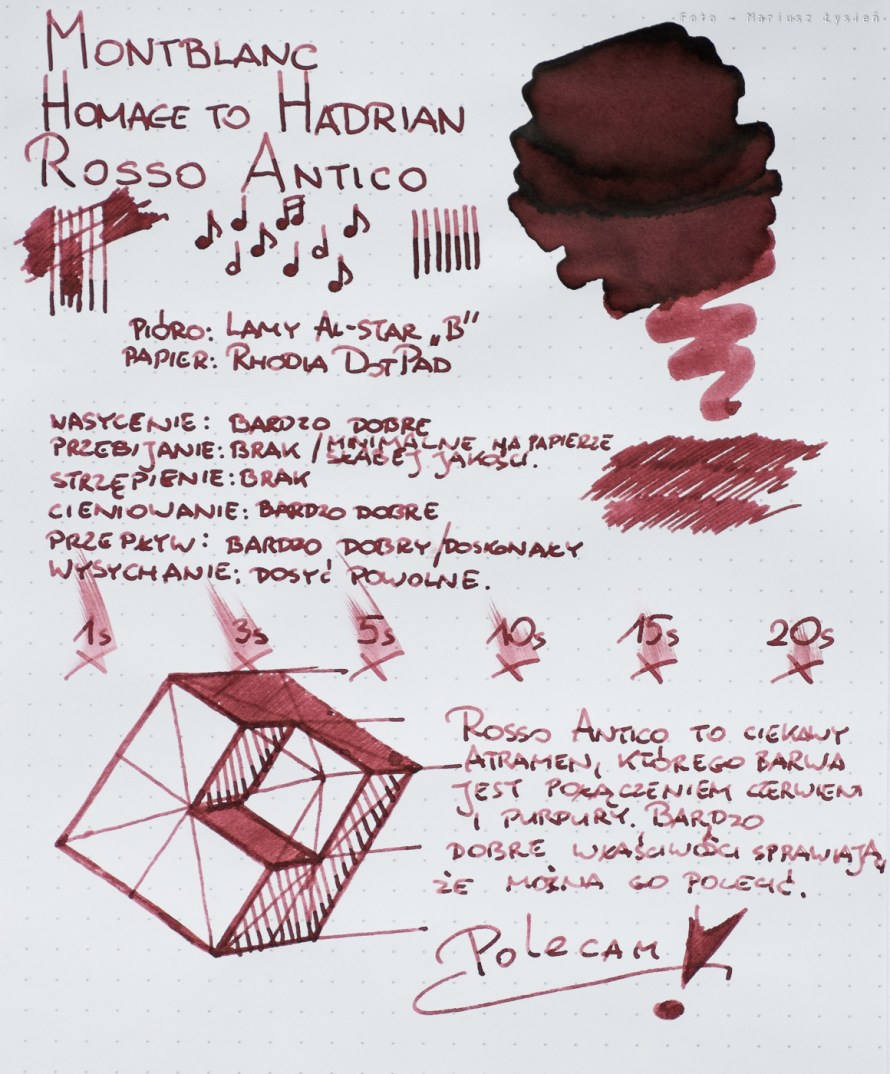 Foto - Mariusz Łysień
MONTBLANC
HOMAGE TO HADRIAN
ROSSO ANTICO
PIÓRO: LAMY AL-STAR „B"
PAPIER: RHODIA DOTPAD
NASYCENIE: BARDZO DOBRE
PRZEBIJANIE: BRAK / MINIMALNE NA PAPIERZE
SŁABEJ JAKOŚCI.
STRZĘPIENIE: BRAK
CIENIOWANIE: BARDZO DOBRE
PRZEPŁYW: BARDZO DOBRY/DOSKONAŁY
WYSYCHANIE: DOSYĆ POWOLNE.
1s 3s 5s 10s 15s 20s
ROSSO ANTICO TO CIEKAWY
ATRAMEN, KTÓREGO BARWA
JEST POŁĄCZENIEM CZERWIENI
I PURPURY. BARDZO
DOBRE WŁAŚCIWOŚCI SPRAWIAJĄ,
ŻE MOŻNA GO POLECIĆ.
POLECAM!